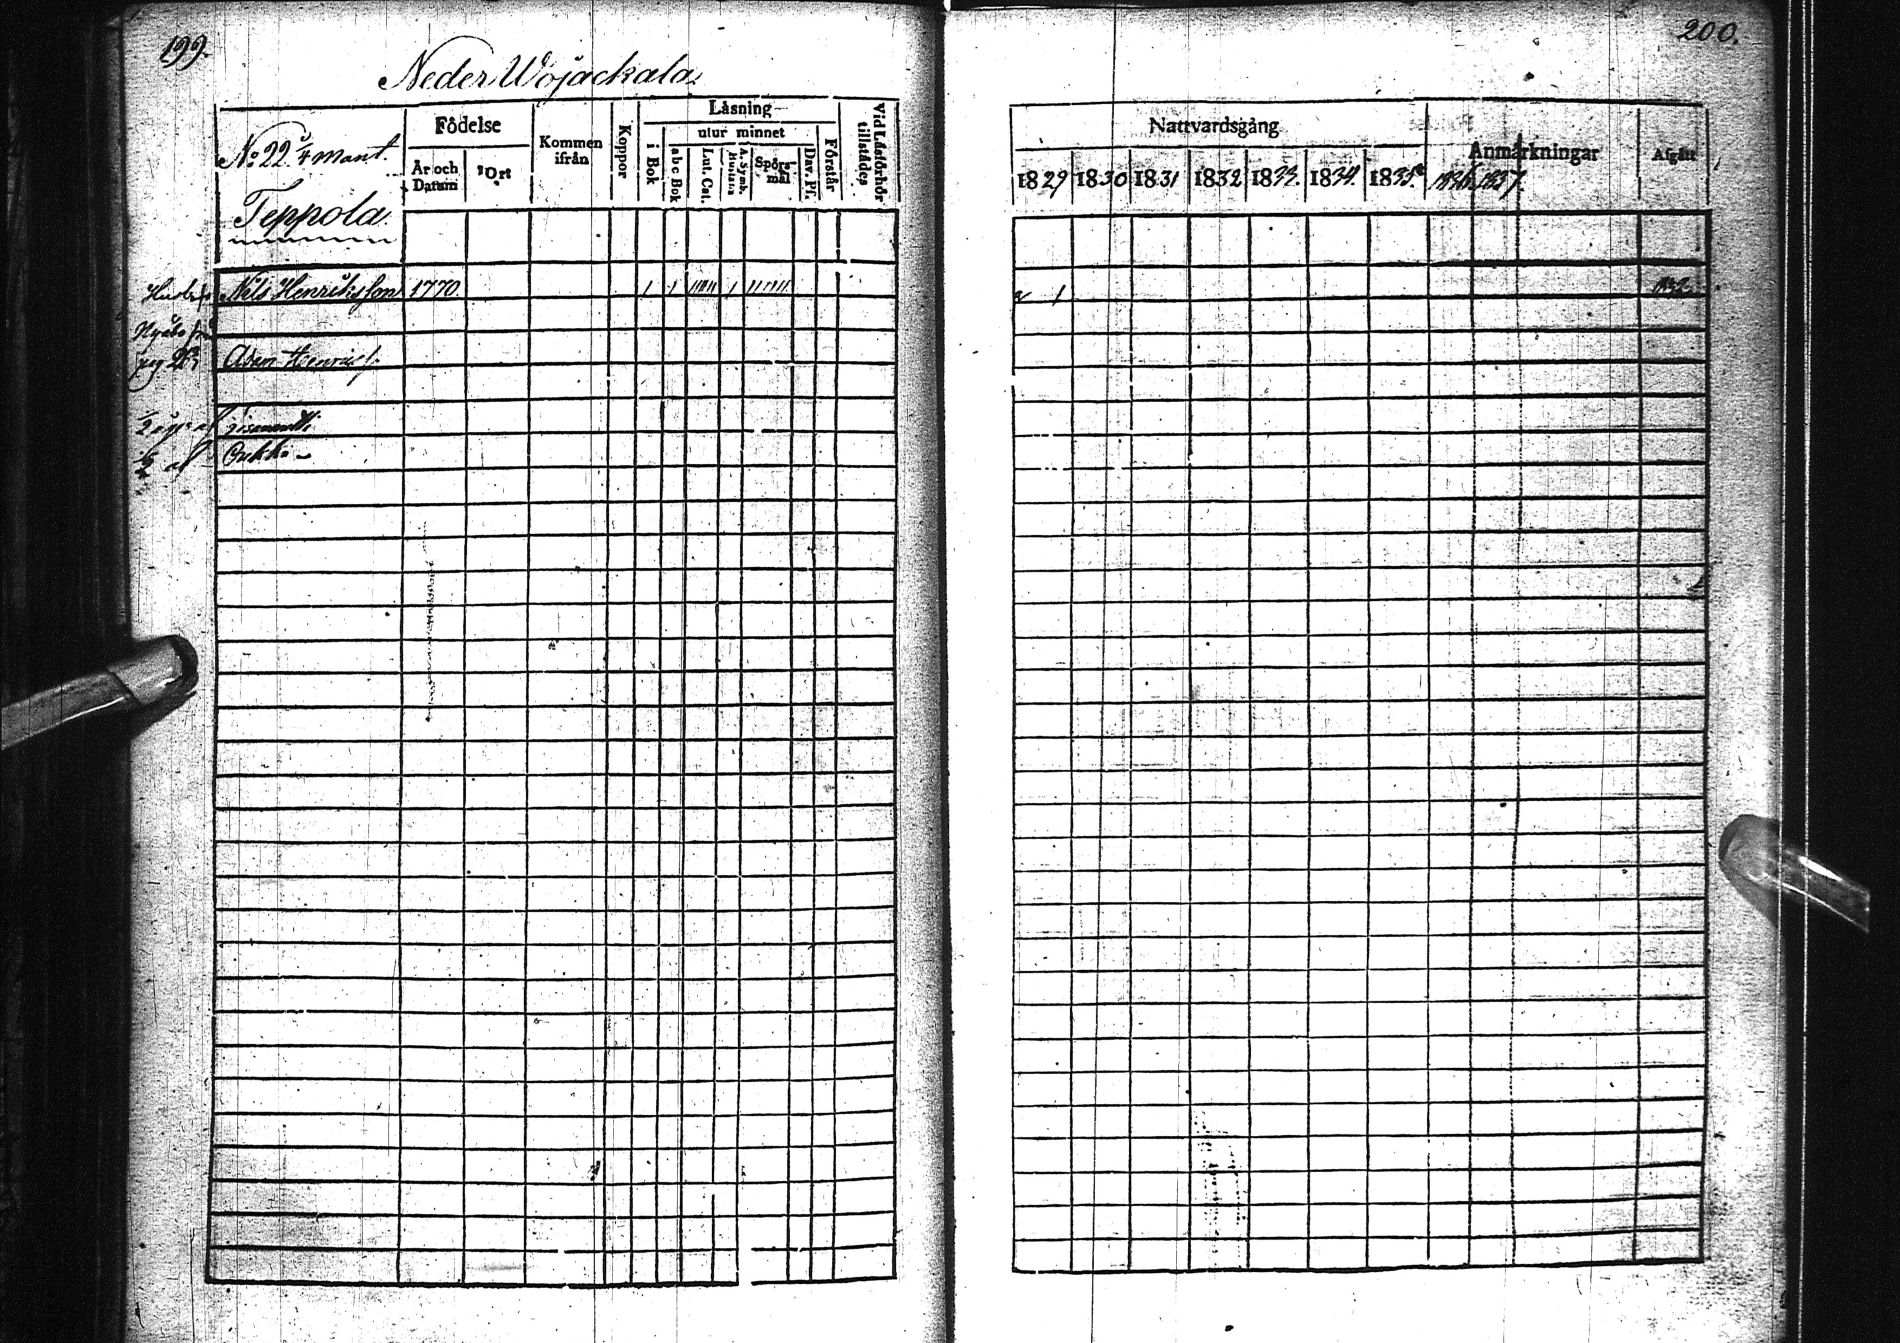 199.
Neder Wojackala
No 22. 1/4 mant.
Teppola
Födelse
År och Datum
Ort
Kommen ifrån
Koppor
Läsning
i Bok
utur minnet
a b c Bok
Lut. Cat.
A. Symb. Hustafla
Spörsmål
Dav. Ps.
Förstår
Vid Läsförhör tillstädes
Nils Henriksson 1770.
Henrics.
Erkki
200.
Nattvardsgång
1829 1830 1831 1832 1833. 1834. 1835.
Anmärkningar
1836. 1837
Afgått
1